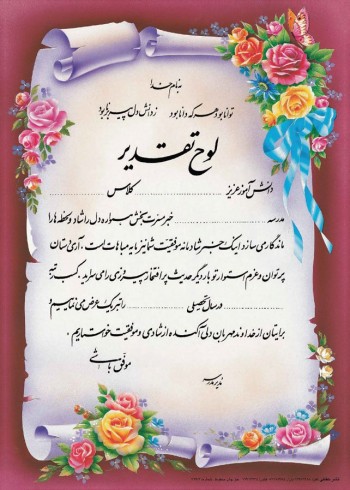 به نام خدا
توانا بود هر که دانا بود ز دانش دل پیر برنا بود
لوح تقدیر
دانش آموز عزیز کلاس
مدرسه خبر مسرت بخش همواره دل را شاد و لحظه ها را
ماندگار می سازد اینک خبر شادمانه موفقیت شما نیز مایه مباهات است. آری دستان
پرتوان و عزم استوار تو بار دیگر حدیث پر افتخار پیروزی را می سراید. کسب رتبه
در سال تحصیلی را تبریک عرض می نماییم و
برایتان از خداوند مهربان دلی آکنده از شادی و موفقیت خواستاریم.
موفق باشی
مدیر مدرسه